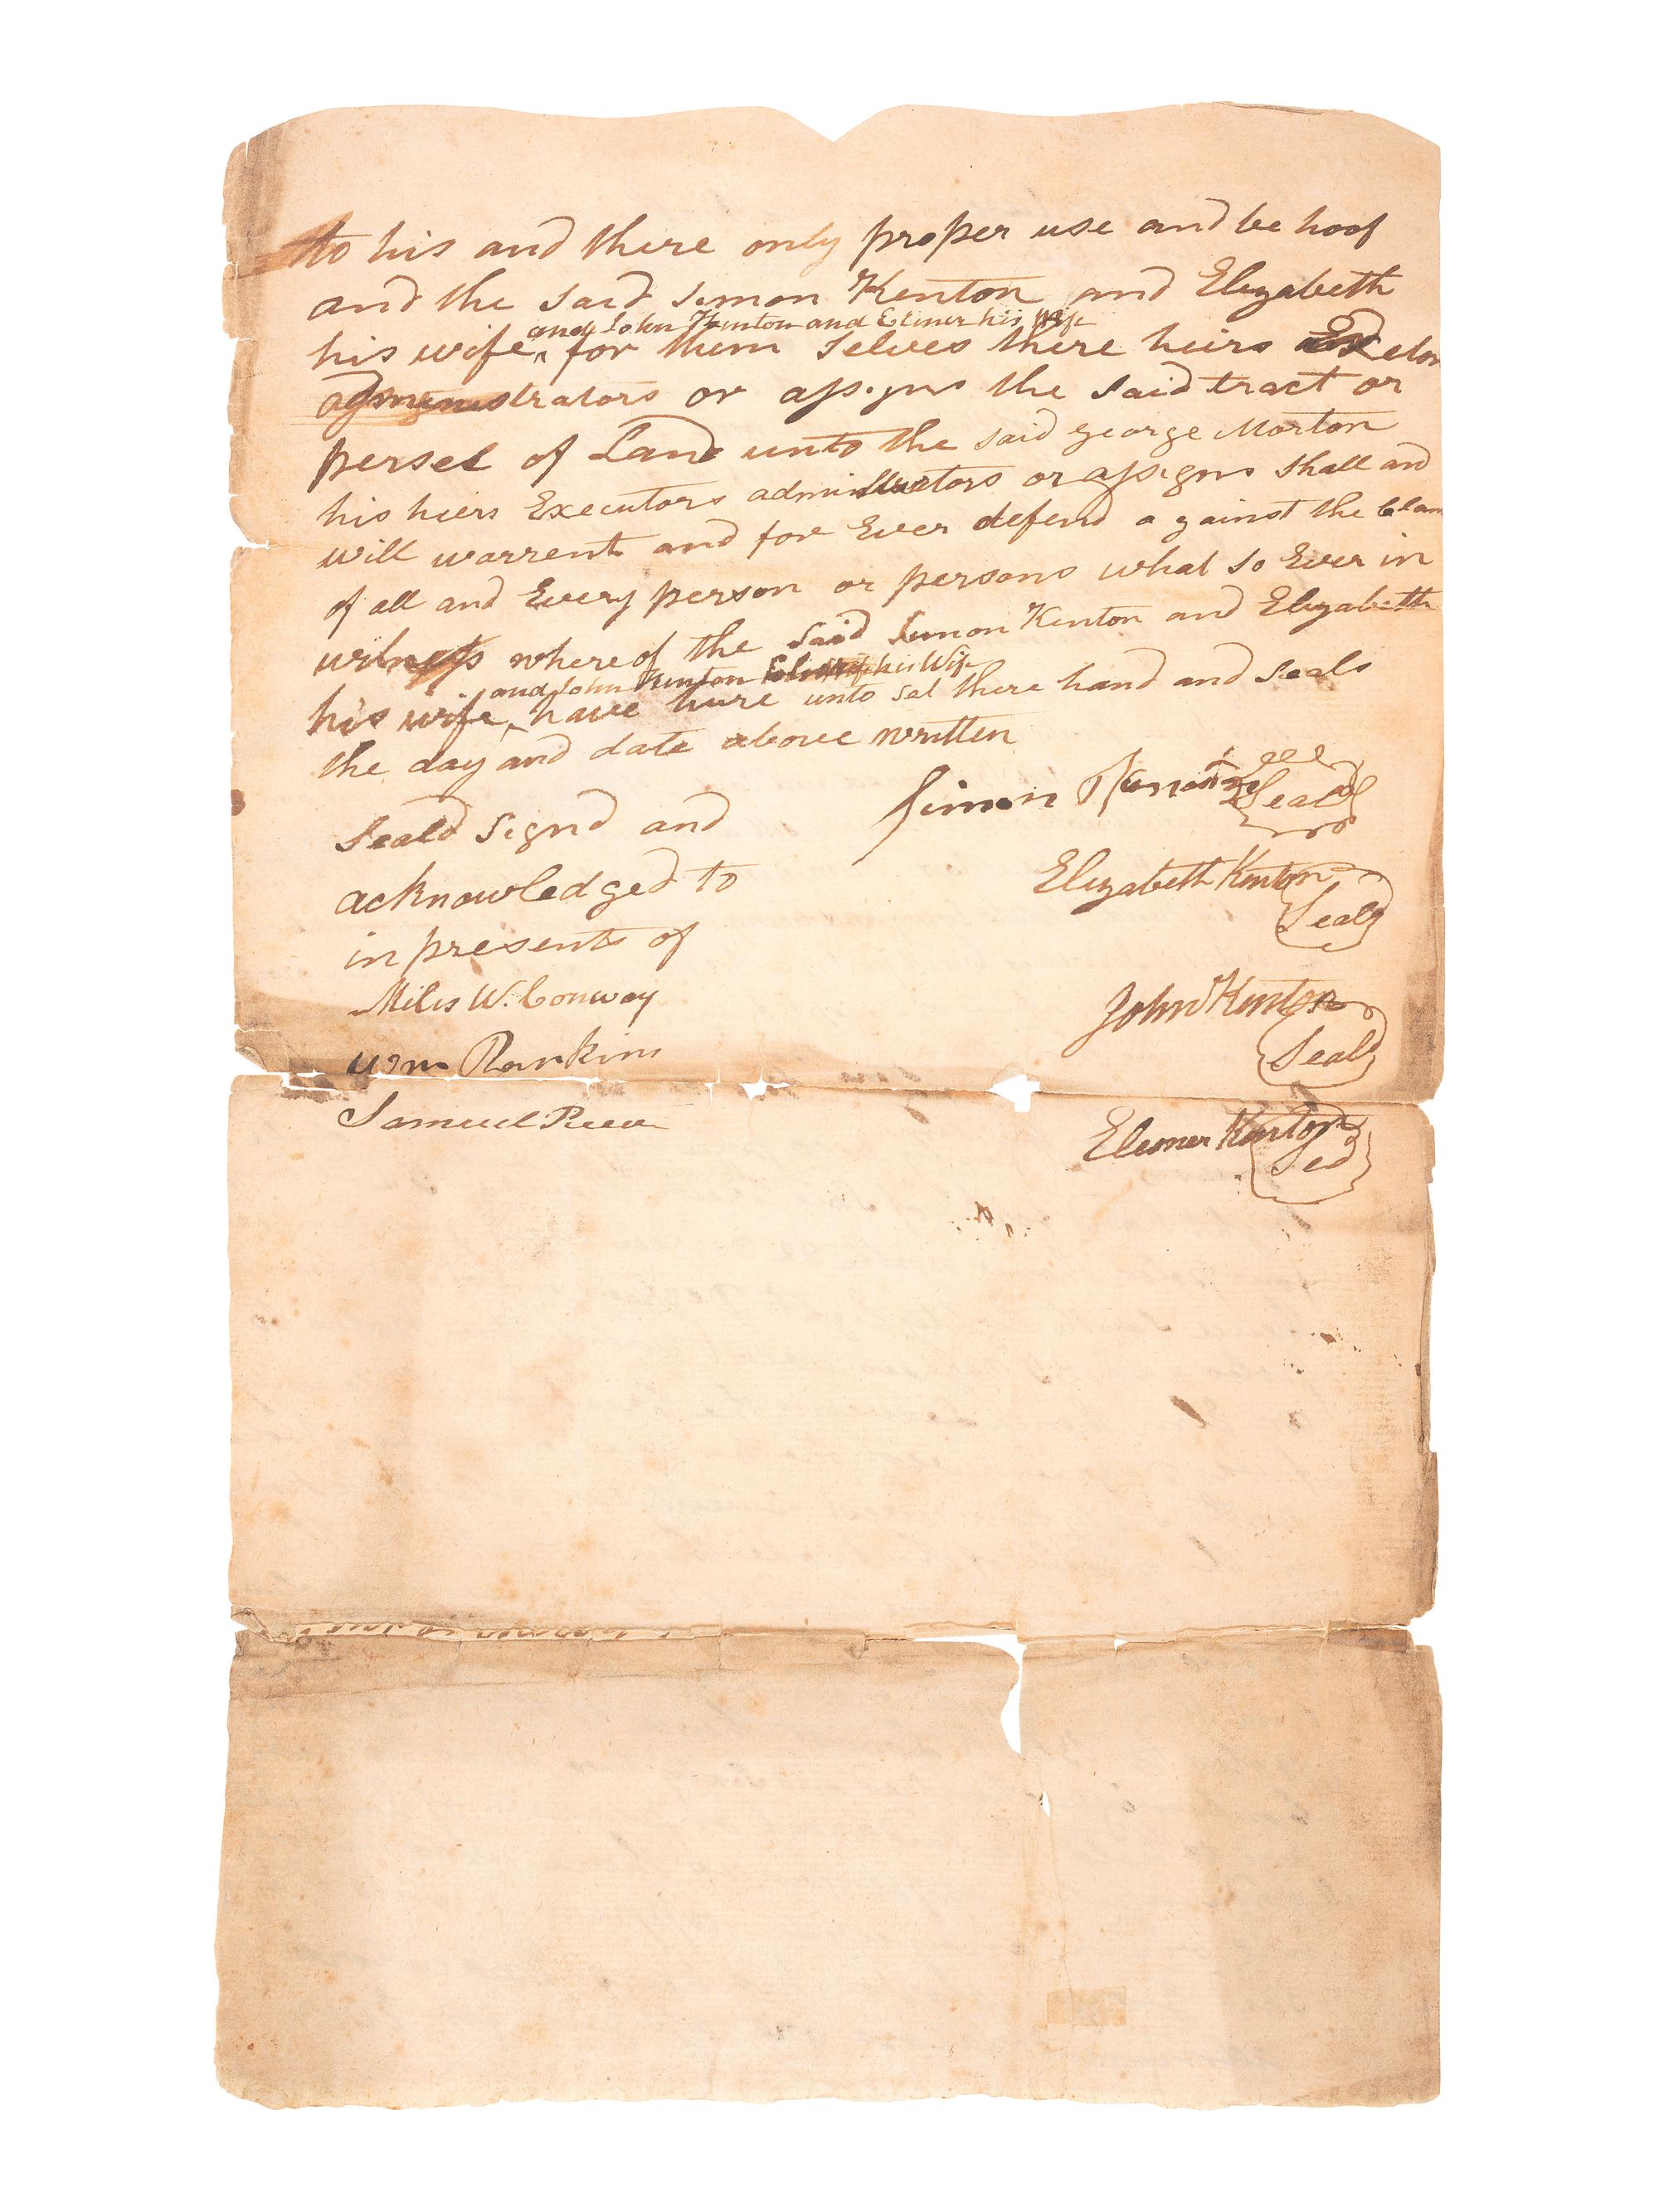 to his and there only proper use and be hoof
and the said Simon Kenton and Elizabeth
and John Kenton and Eliner his Wife
his wife ^ for them selves there heirs
administrators or assigns the said tract or
persel of Land unto the said george Morton
his hiers Executors adminstrators or assigns shall and
will warrent and for Ever defend a gainst the Clam
of all and Every person or persons what so Ever in
witness where of the said Simon Kenton and Elizabeth
and John Kenton his Wife
his wife ^ have hure unto set there hand and seals
the day and date above written
Seald Signd and
acknowledged to
in presents of
Miles W. Conway
Wm Rankins
Samuel
Simon Kenton Seal
Elizabeth Kenton
Seal
John Kenton
Seal
Elenner Kenton